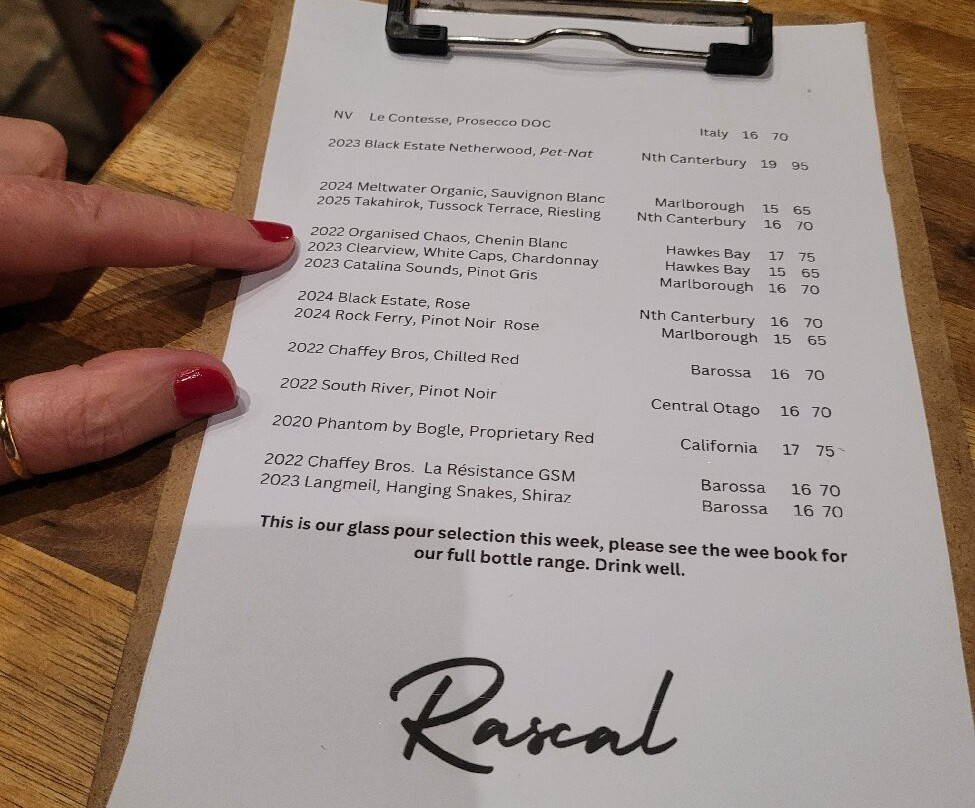 NV Le Contesse, Prosecco DOC Italy 16 70
2023 Black Estate Netherwood, Pet-Nat Nth Canterbury 19 95
2024 Meltwater Organic, Sauvignon Blanc Marlborough 15 65
2025 Takahirok, Tussock Terrace, Riesling Nth Canterbury 16 70
2022 Organised Chaos, Chenin Blanc Hawkes Bay 17 75
2023 Clearview, White Caps, Chardonnay Hawkes Bay 15 65
2023 Catalina Sounds, Pinot Gris Marlborough 16 70
2024 Black Estate, Rose Nth Canterbury 16 70
2024 Rock Ferry, Pinot Noir Rose Marlborough 15 65
2022 Chaffey Bros, Chilled Red Barossa 16 70
2022 South River, Pinot Noir Central Otago 16 70
2020 Phantom by Bogle, Proprietary Red California 17 75
2022 Chaffey Bros. La Résistance GSM Barossa 16 70
2023 Langmeil, Hanging Snakes, Shiraz Barossa 16 70
This is our glass pour selection this week, please see the wee book for
our full bottle range. Drink well.
Rascal